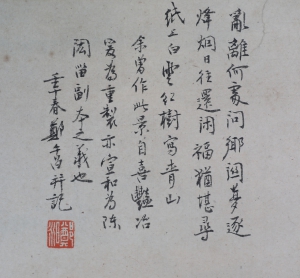 亂離何處問鄉園夢逐
烽烟日往還閒福猶堪尋
紙上白雲紅樹寫青山
余曾作此景自喜艷冶
爰為重製亦宣和為陳
閎留副本之義也
季春鄭午昌并記